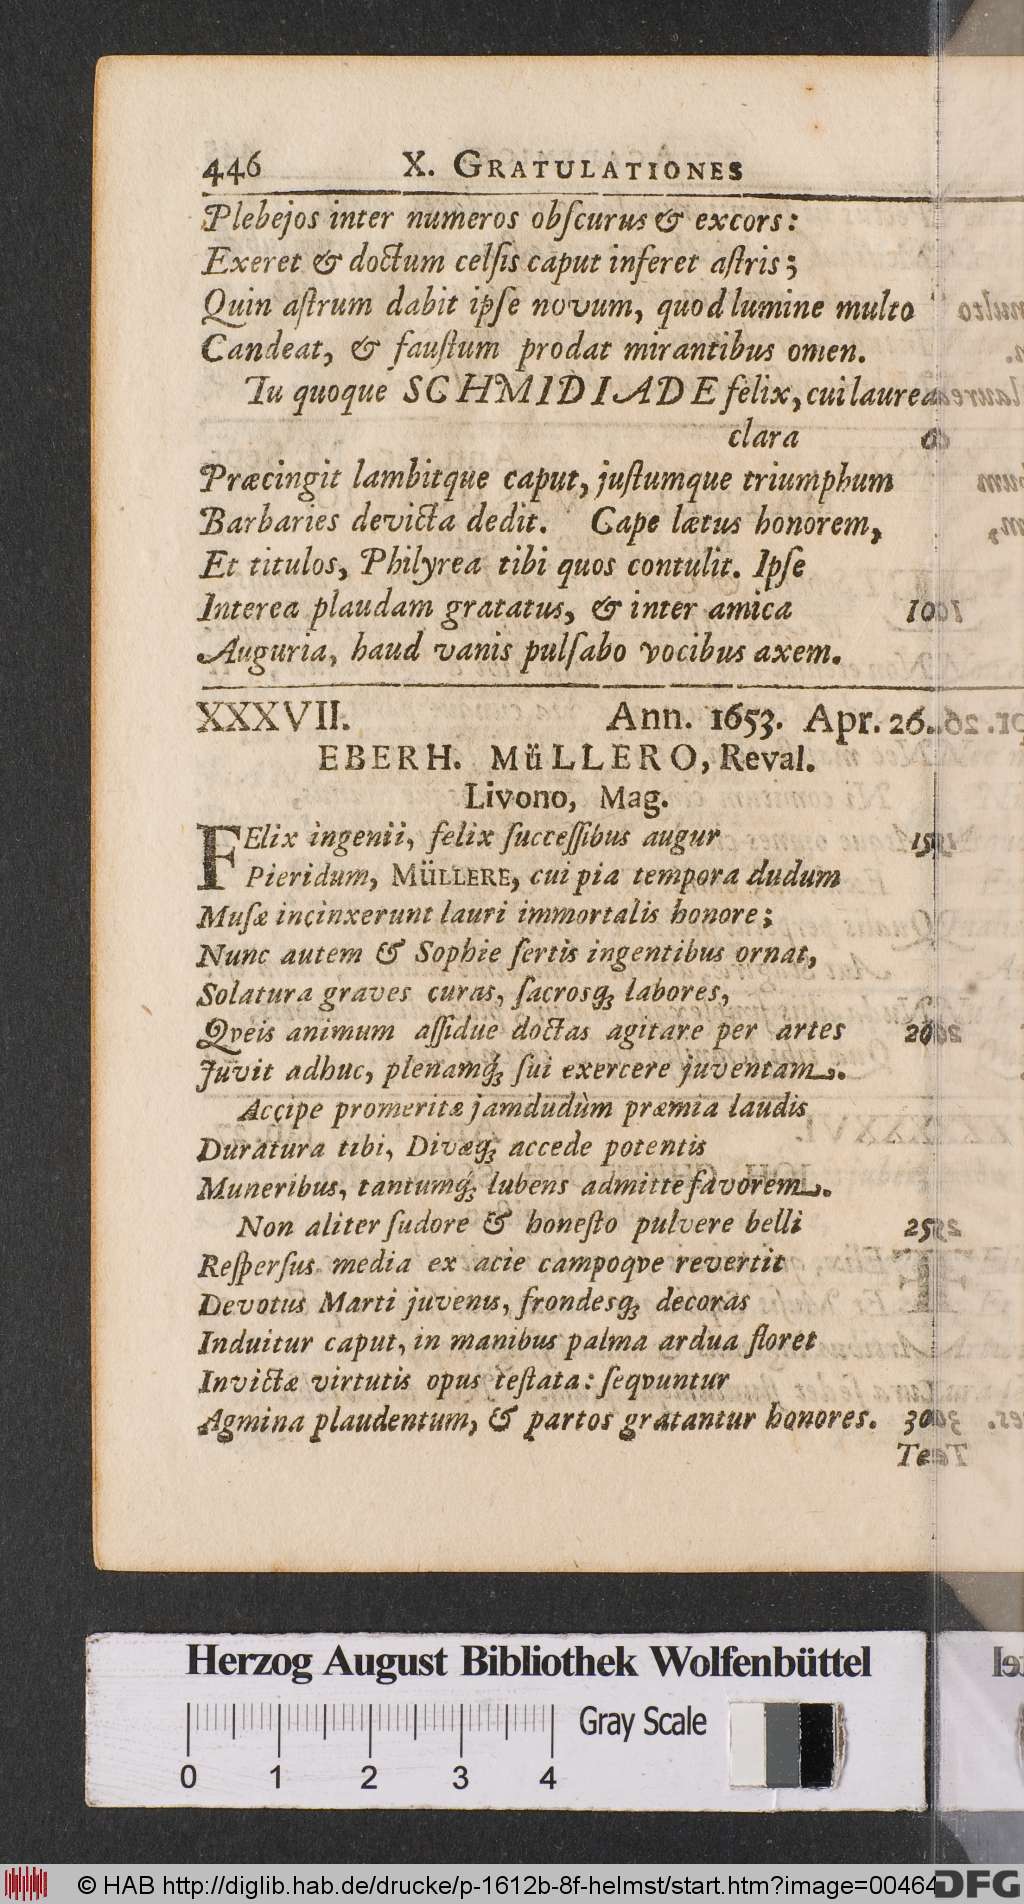 446 X. GRATULATIONES
Plebejos inter numeros obſcurus & excors:
Exeret & doctum celſis caput inferet aſtris;
Quin aſtrum dabit ipſe novum, quod lumine multo
Candeat, & fauſtum prodat mirantibus omen.
Tu quoque SCHMIDIADE felix, cui laurea
clara
Præcingit lambitque caput, juſtumque triumphum
Barbaries devicta dedit. Cape lætus honorem,
Et titulos, Philyrea tibi quos contulit. Ipſe
Interea plaudam gratatus, & inter amica
Auguria, haud vanis pulſabo vocibus axem.
XXXVII. Ann. 1653. Apr. 26.
EBERH. MüLLERO, Reval.
Livono, Mag.
FElix ingenii, felix ſucceſſibus augur
Pieridum, MÜLLERE, cui pia tempora dudum
Muſæ incinxerunt lauri immortalis honore;
Nunc autem & Sophie ſertis ingentibus ornat,
Solatura graves curas, ſacrosq; labores,
Qveis animum aſſidue doctas agitare per artes 20
Juvit adhuc, plenamq́; ſui exercere juventam.
Accipe promeritæ jamdudùm præmia laudis
Duratura tibi, Divæq; accede potentis
Muneribus, tantumq́; lubens admitte favorem.
Non aliter ſudore & honeſto pulvere belli 25
Reſperſus media ex acie campoqve revertit
Devotus Marti juvenis, frondesq; decoras
Induitur caput, in manibus palma ardua floret
Invictæ virtutis opus teſtata: ſeqvuntur
Agmina plaudentum, & partos gratantur honores. 30
Herzog August Bibliothek Wolfenbüttel
Gray Scale
0 1 2 3 4
© HAB http://diglib.hab.de/drucke/p-1612b-8f-helmst/start.htm?image=00464
DFG